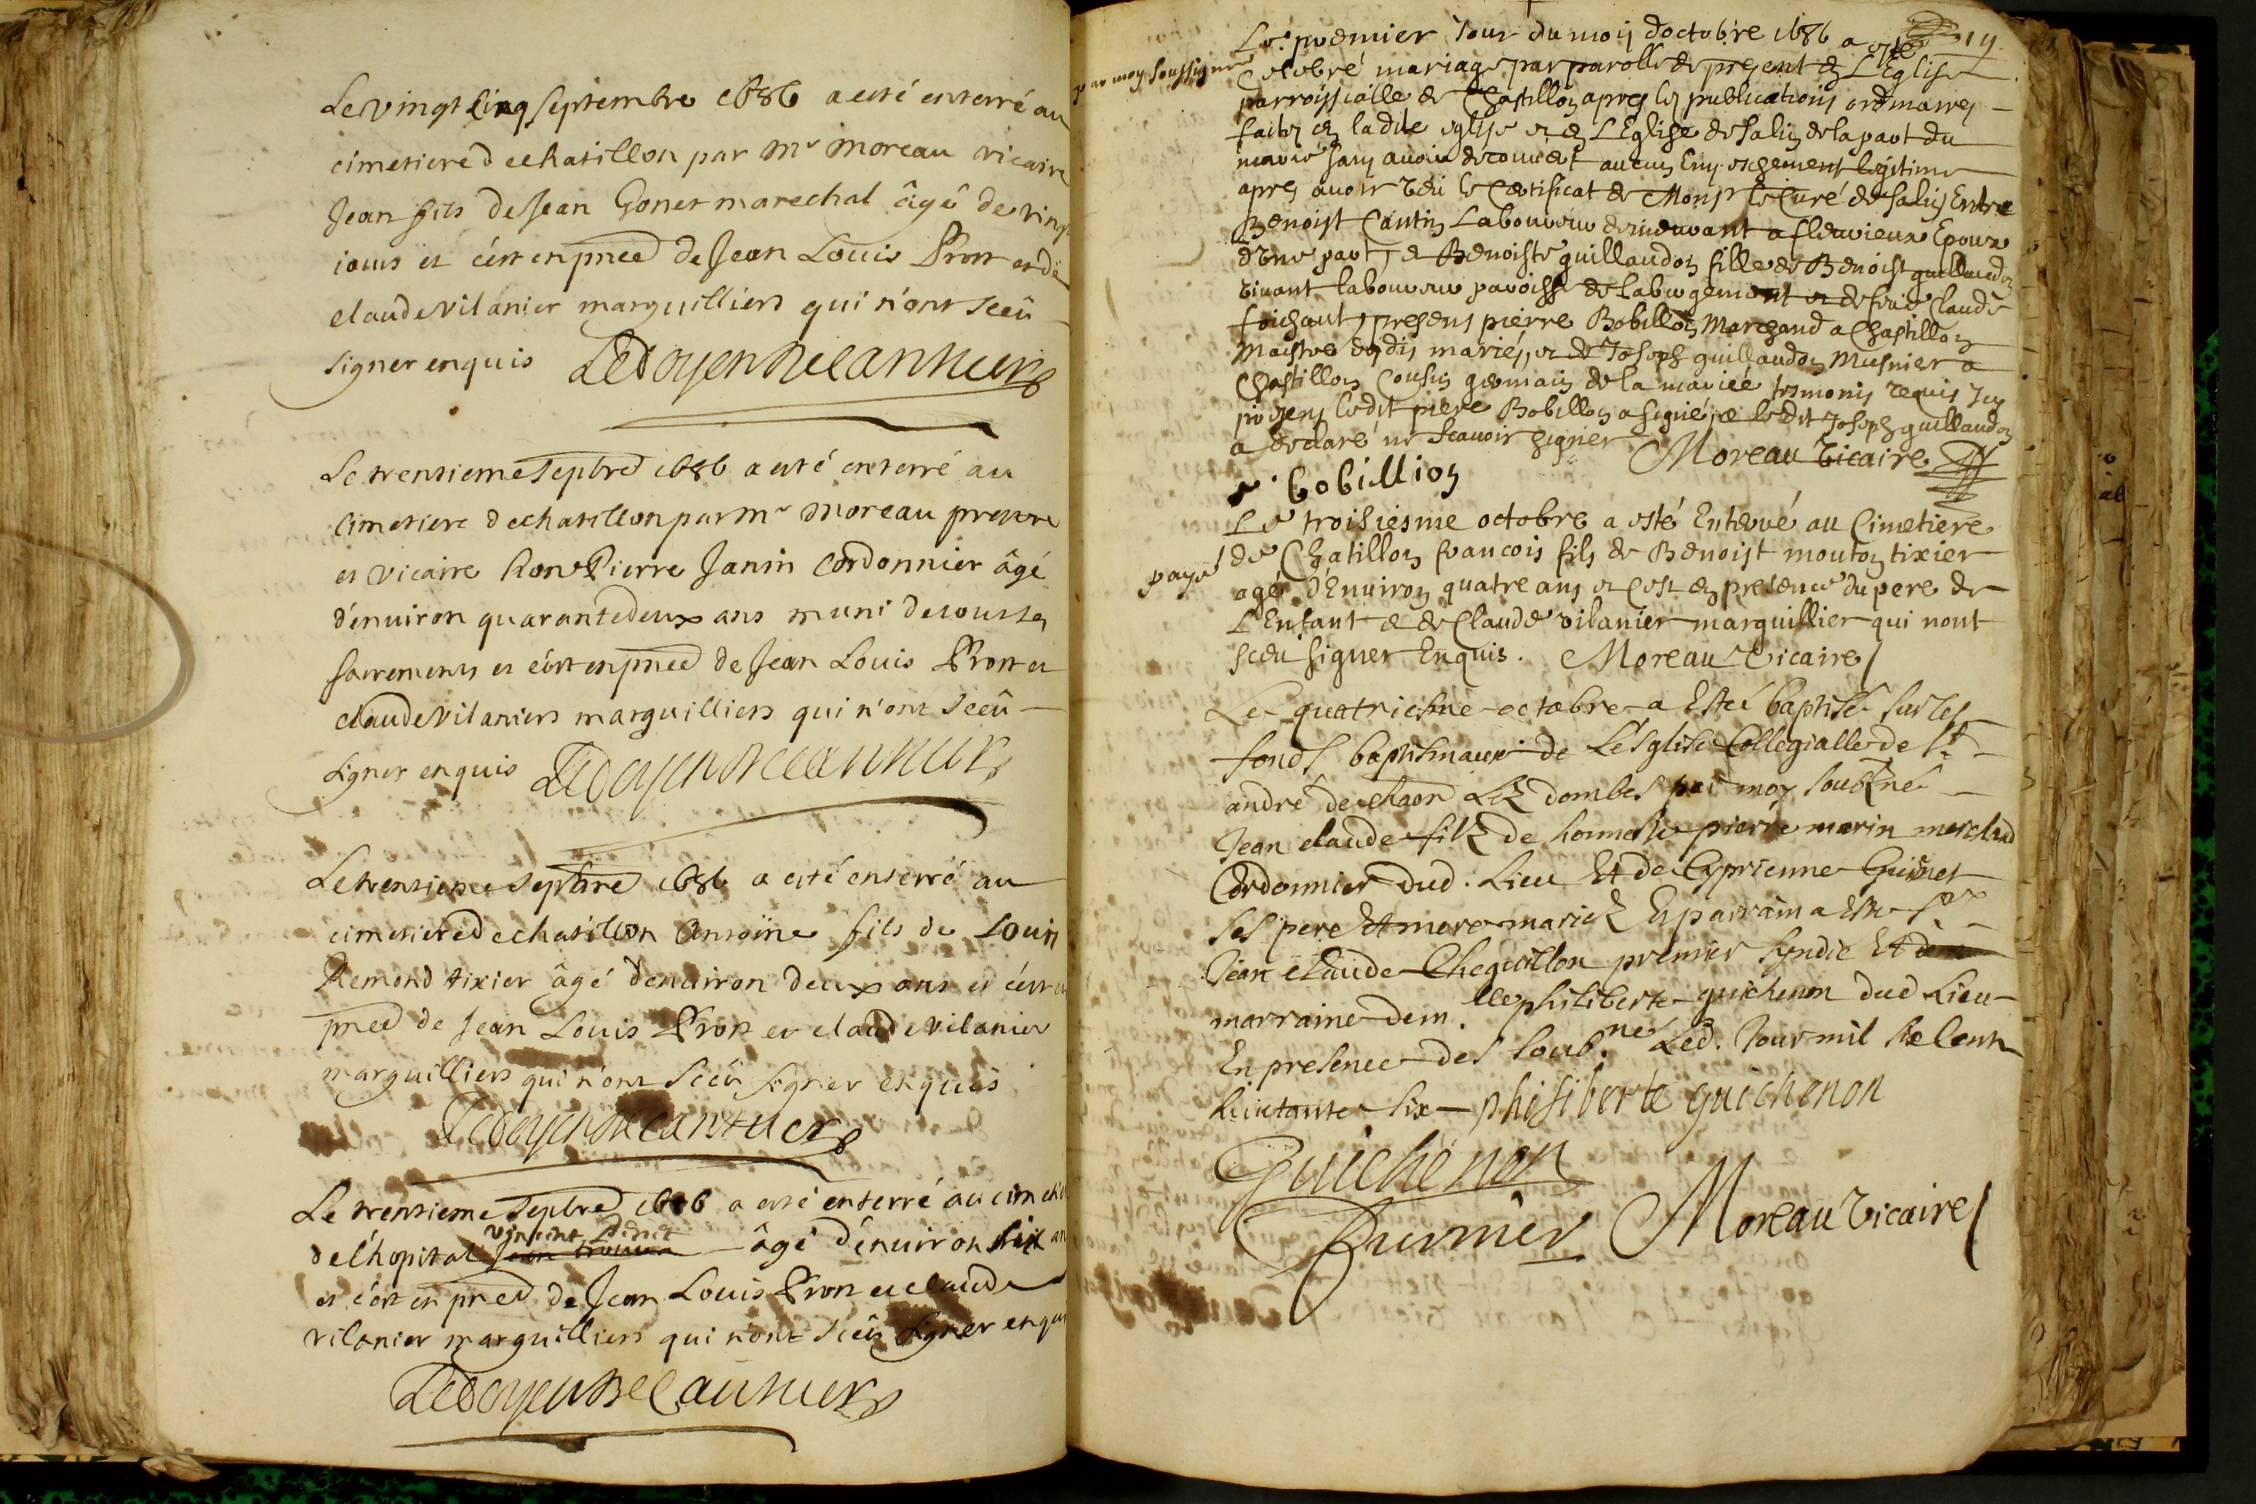 Le vingt cinq septembre 1686 a esté enterré au
cimetiere de chatillon par Mr Moreau vicaire
Jean fils de Jean Gonet marechal âgé de vingt
iours et c'est en pnce de Jean Louis Pront et de
claude vilanier marguilliers qui n'ont sceû
signer enquis Ledoyen
Le trentieme septbre 1686 a esté enterré au
cimetiere de chatillon par mr Moreau prestre
et vicaire hone Pierre Janin Cordonnier âgé
d'énuiron quarantedeux ans muni de tous les
sacrements et c'est en pnce de Jean Louis Pront et
claude vilaniers marguilliers qui n'ont sceû
signer enquis Ledoyen
Le trentieme septbre 1686 a esté enterré au
cimetiere de chatillon Antoine fils de Louis
Remond tixier âgé denuiron deux ans et c'est en
pnce de Jean Louis Pront et claude vilanier
marguilliers qui n'ont sceû signer enquis
Ledoyen
Le trentieme septbre 1686 a esté enterré au cimet
de l'hopital vincent âgé d'énuiron six an
et c'est en pnce de Jean Louis Pront et claude
vilanier marguilliers qui n'ont sceû signer enquis
Ledoyen
19
Le premier Jour du moys doctobre 1686 a esté
par moy soussigné
Celebré mariage par parolle de present en L'Eglise
parroissialle de Chastillon apres les publications ordinaires
faites en ladite eglise et en L'Eglise de salin de la part du
marié sans avoir decouuert aucun Empeschement legitime
apres avoir veu le Certificat de Monsr le Curé de salin Entre
Benoist Cantin Laboureur demeurant a fleurieux Epoux
d'une part, et Benoiste guillaudon fille de Benoist guillaudon
viuant laboureur paroisse de labergement et de feuë Claude
foichaut, presens pierre Bobillon Marchand a Chastillon
Maistre desdis mariés, et de Joseph guillaudon Musnier a
Chastillon Cousin germain de la mariée tesmonis requis
presens ledit piere Bobillon a signé, et ledit Joseph guillaudon
a declaré ne scauoir signer Moreau vicaire
bobillion
Le troisiesme octobre a esté Enterré au Cimetiere
payé
de Chatillon francois fils de Benoist mouton tixier
agé d'Enuiron quatre ans et c'est en presence du pere de
L'Enfant et de Claude vilanier marguillier qui nont
sceu signer Enquis. Moreau vicaire
Le quatriesme octobre a Esté baptisé sur les
fonds baptismaux de Lesglise Collegialle de St
andré de chaon Lez dombes par moy soubzné
Jean claude filz de honneste pierre marin merchand
Cordonnier dud. Lieu Et de Cyprienne Guinet
ses pere Et mere mariez Et parrain a Este sr
Jean claude Cheguillon premier syndic Et
marraine dem.lle philiberte guichenon dud Lieu
En presence des soub.nés Led. Jour mil six Cents
huictante six philiberte guichenon
Guichenon
Moreau vicaire